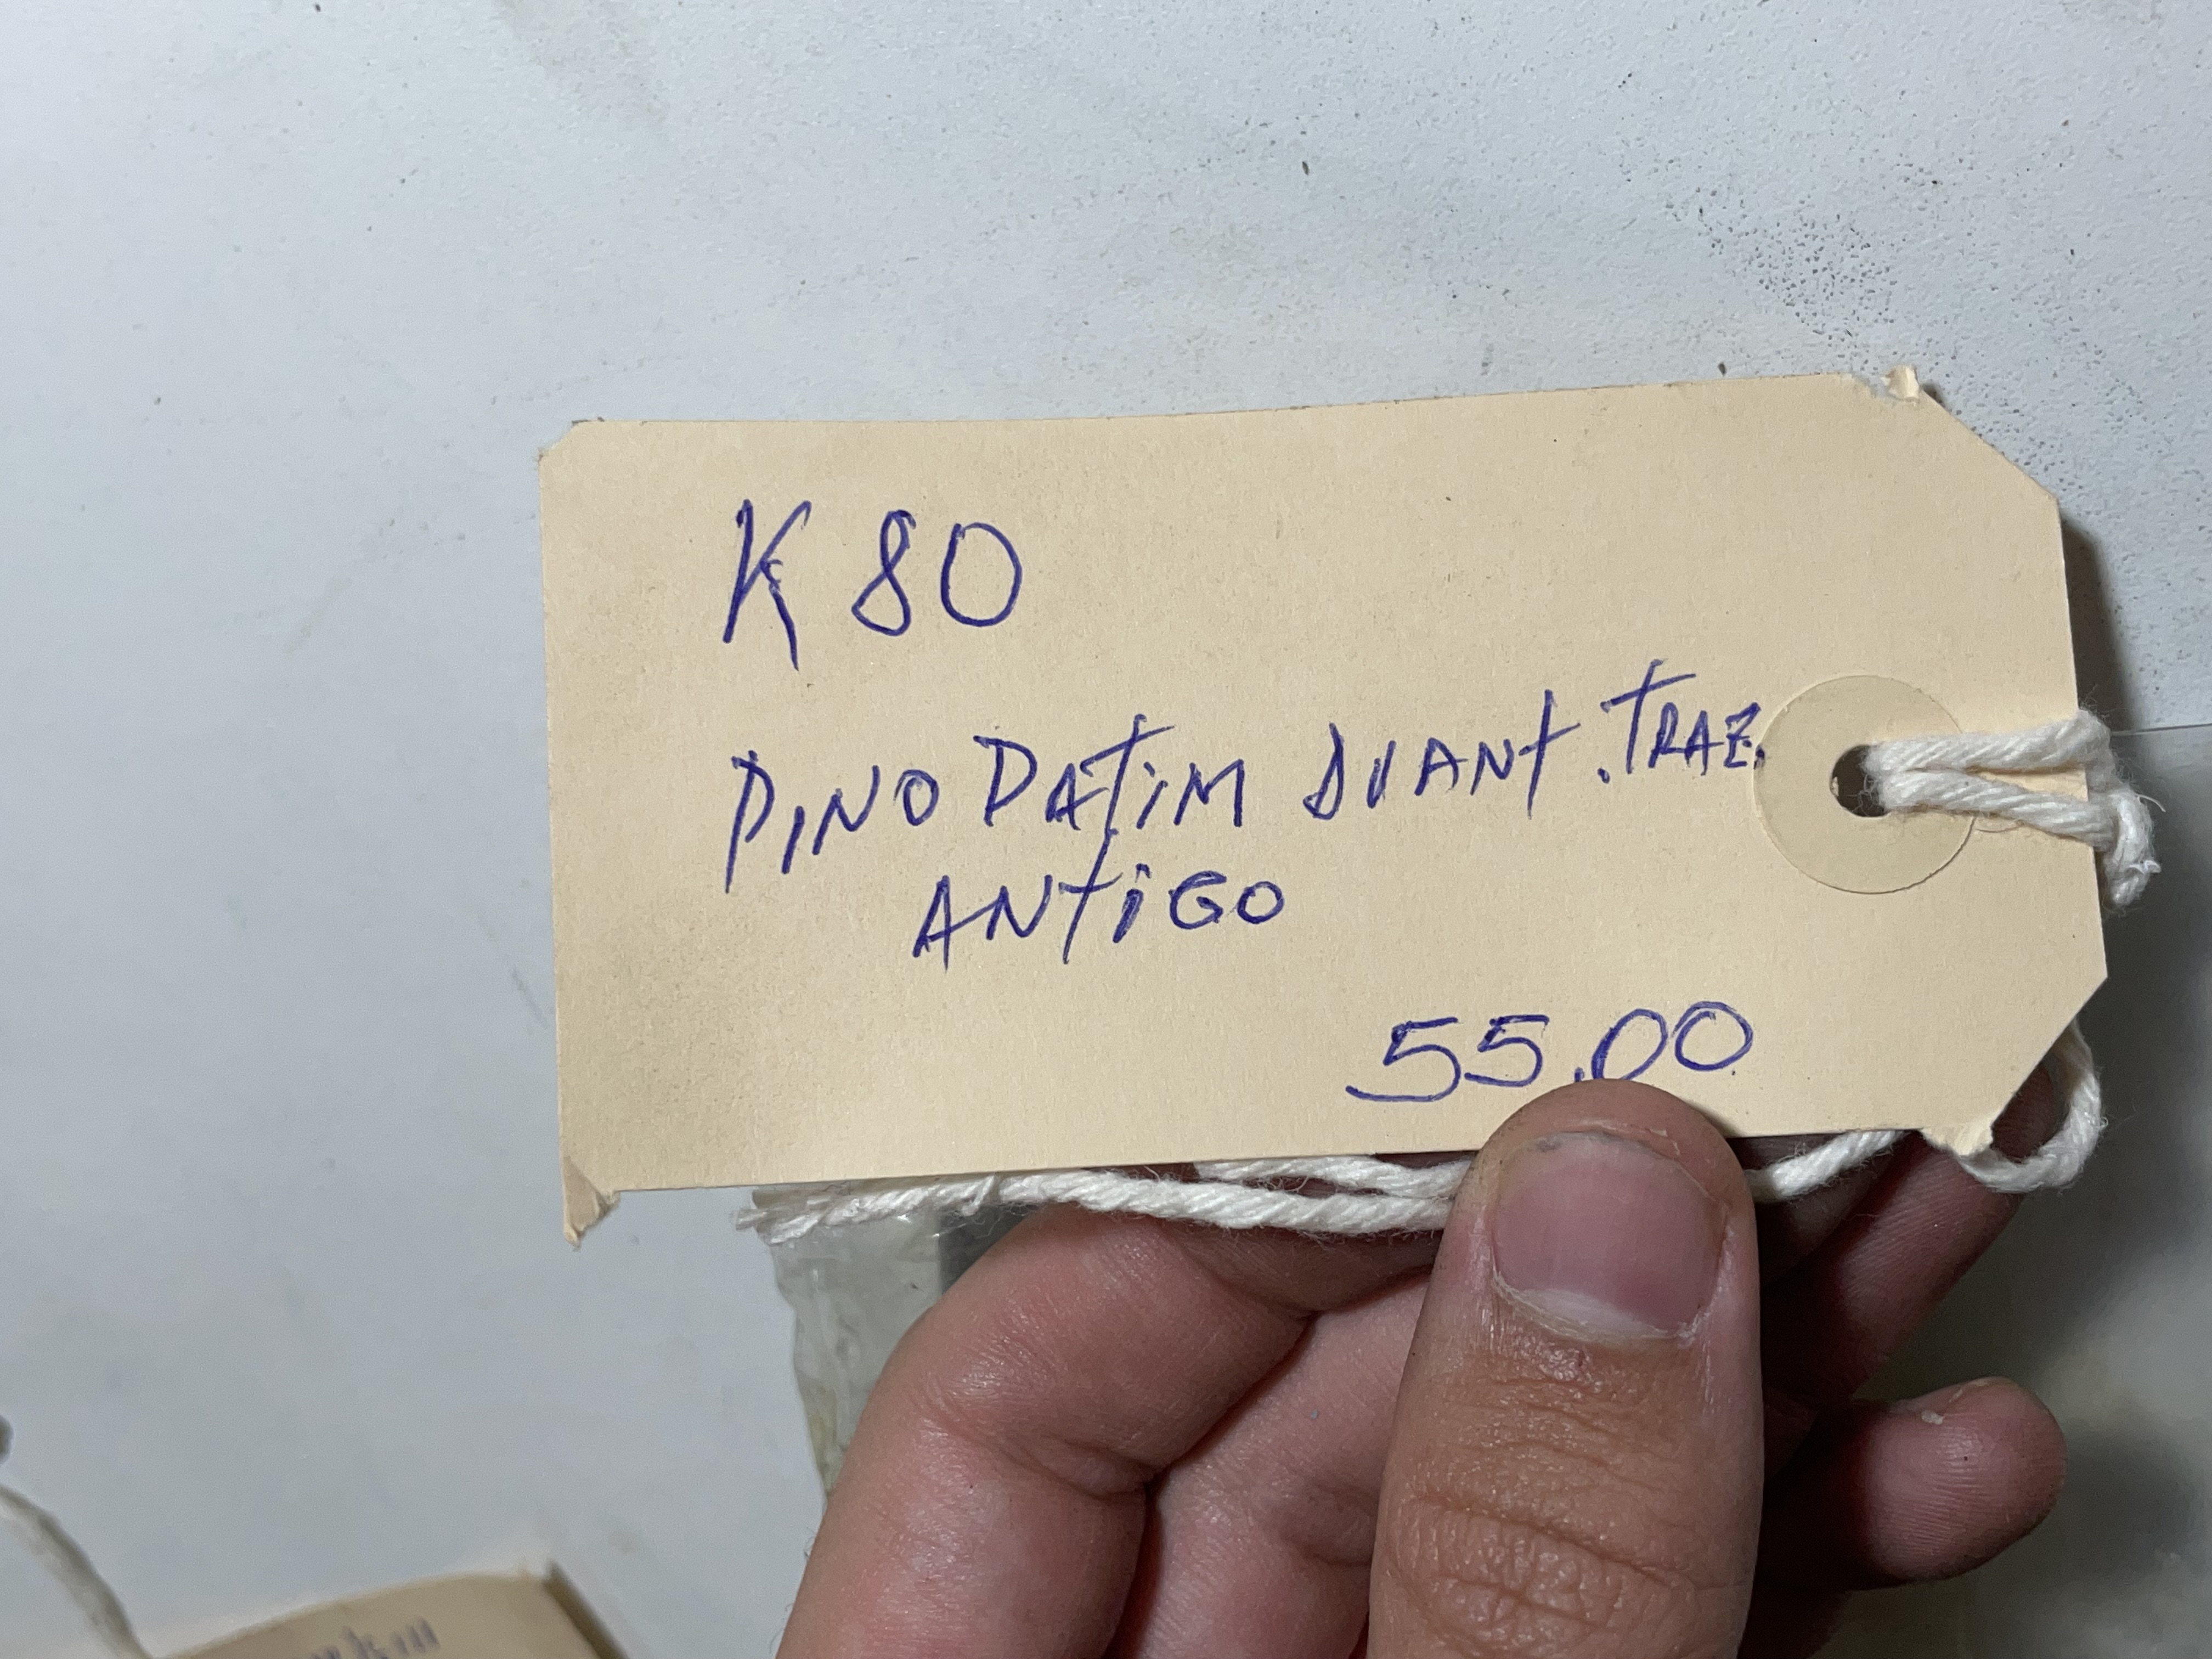 K 80
PINO PATIM DIANT. TRAZ.
ANTIGO
55.00